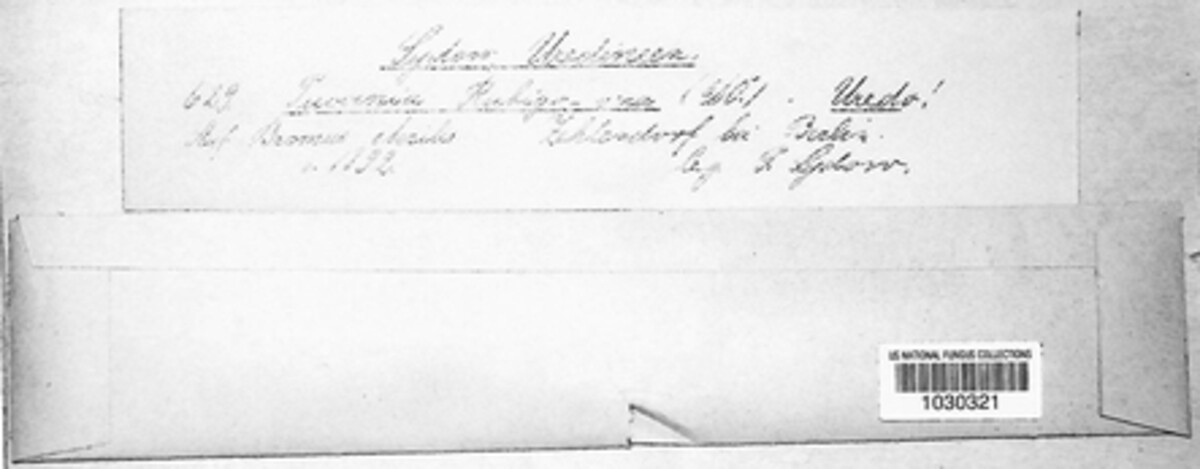 Sydow Uredineen.
629. Puccinia Rubigo-vera (DC.) - Uredo!
Auf Bromus sterilis Zehlendorf bei Berlin.
1892. leg. P. Sydow.
US NATIONAL FUNGUS COLLECTIONS
1030321